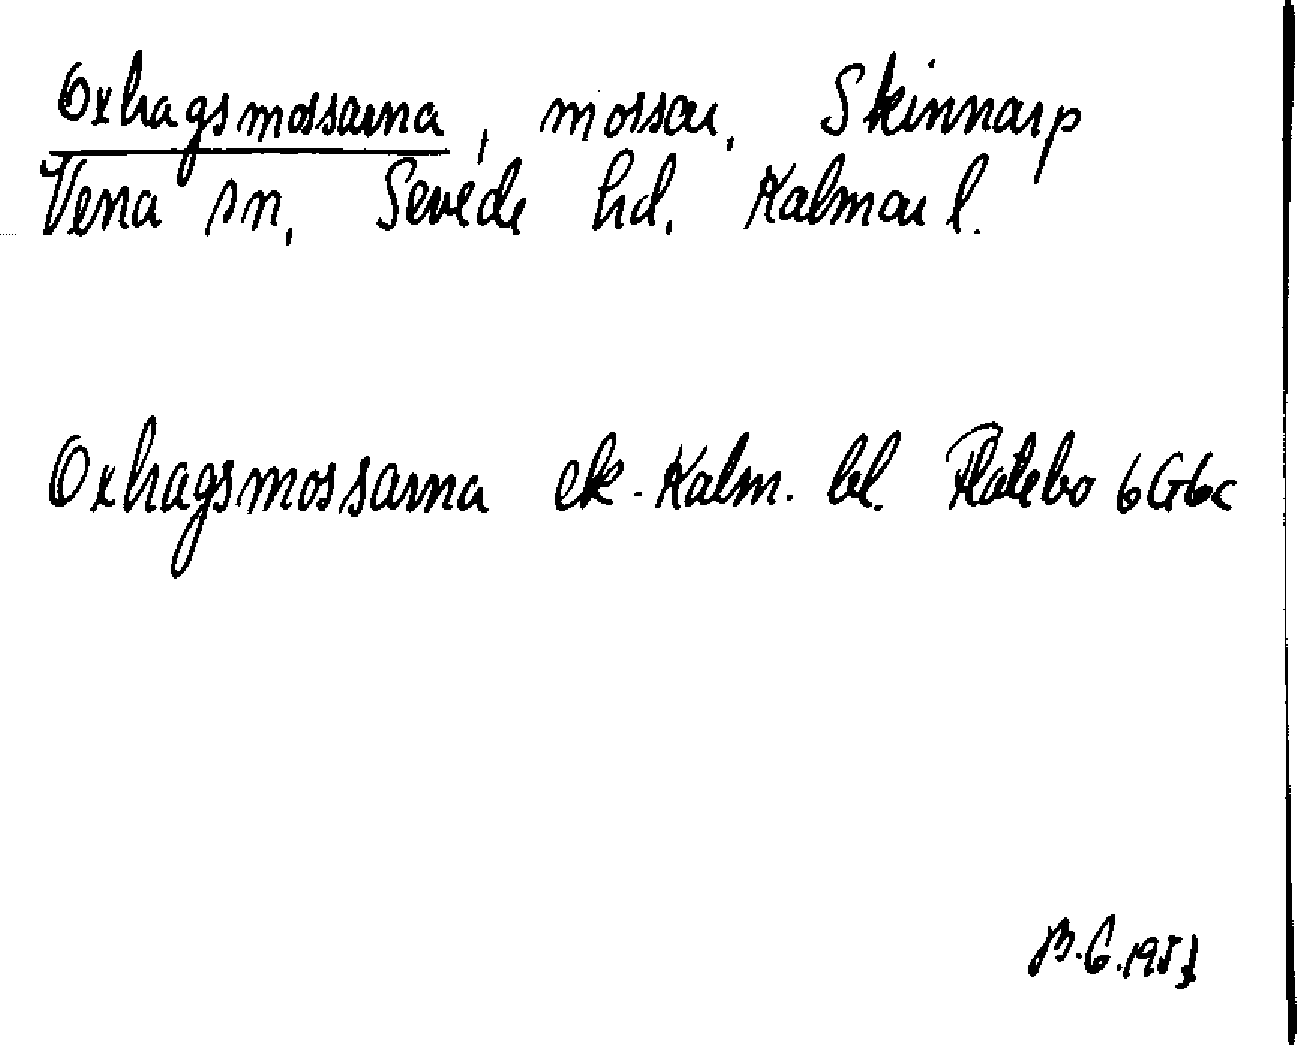 Oxhagsmossarna, mossar, Skinnarp
Vena sn, Sevede hd, Kalmar l.
Oxhagsmossarna ek. Kalm. bl. Flatebo 6G6c
B.G.